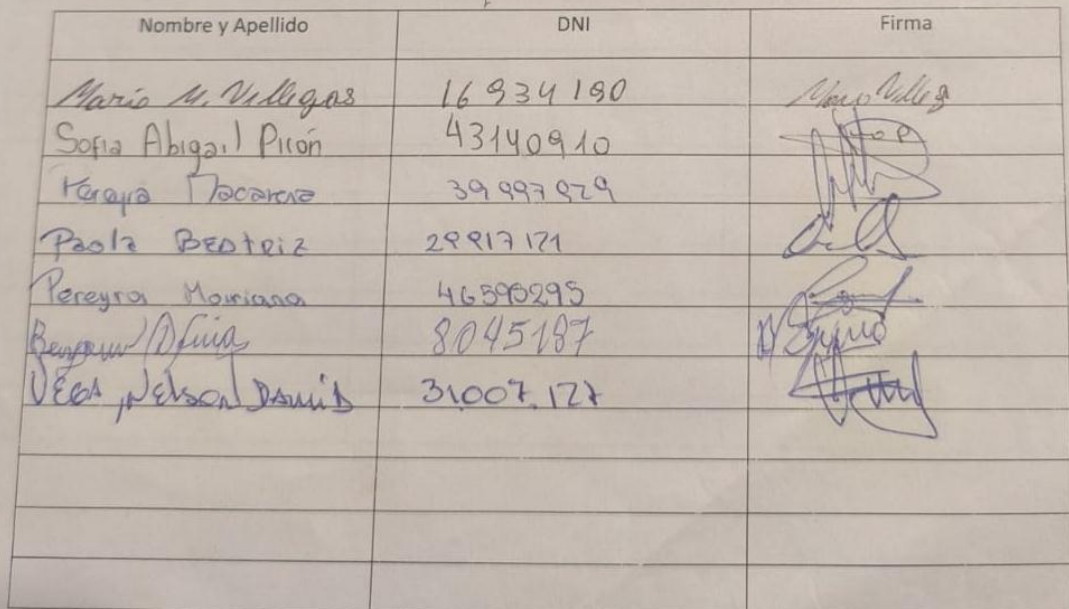 Nombre y Apellido DNI Firma
Mario M. Villegas 16 934 190 Mario Villeg
Sofia Abigail Picón 43140910
Macarena 39 997 829
Paola BEatriz 29817121
Pereyra Mariana 46595295
8045187
VEGA, NELSON DAVID 31.007.127